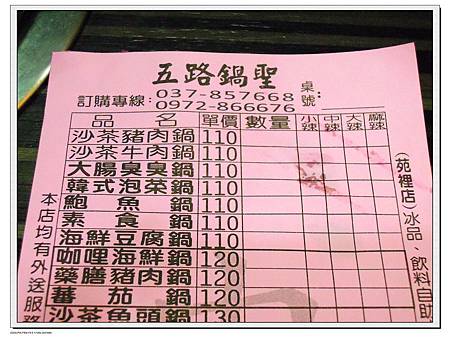 五路鍋聖
訂購專線:
037-857668
0972-866676
桌號:
品名 單價 數量 小辣 中辣 大辣 麻辣
沙茶豬肉鍋 110
沙茶牛肉鍋 110
大腸臭臭鍋 110
韓式泡菜鍋 110
鮑魚鍋 110
素食鍋 110
海鮮豆腐鍋 110
咖哩海鮮鍋 120
藥膳豬肉鍋 120
蕃茄鍋 120
沙茶魚頭鍋 130
本店均有外送服務
(苑裡店)冰品、飲料自助